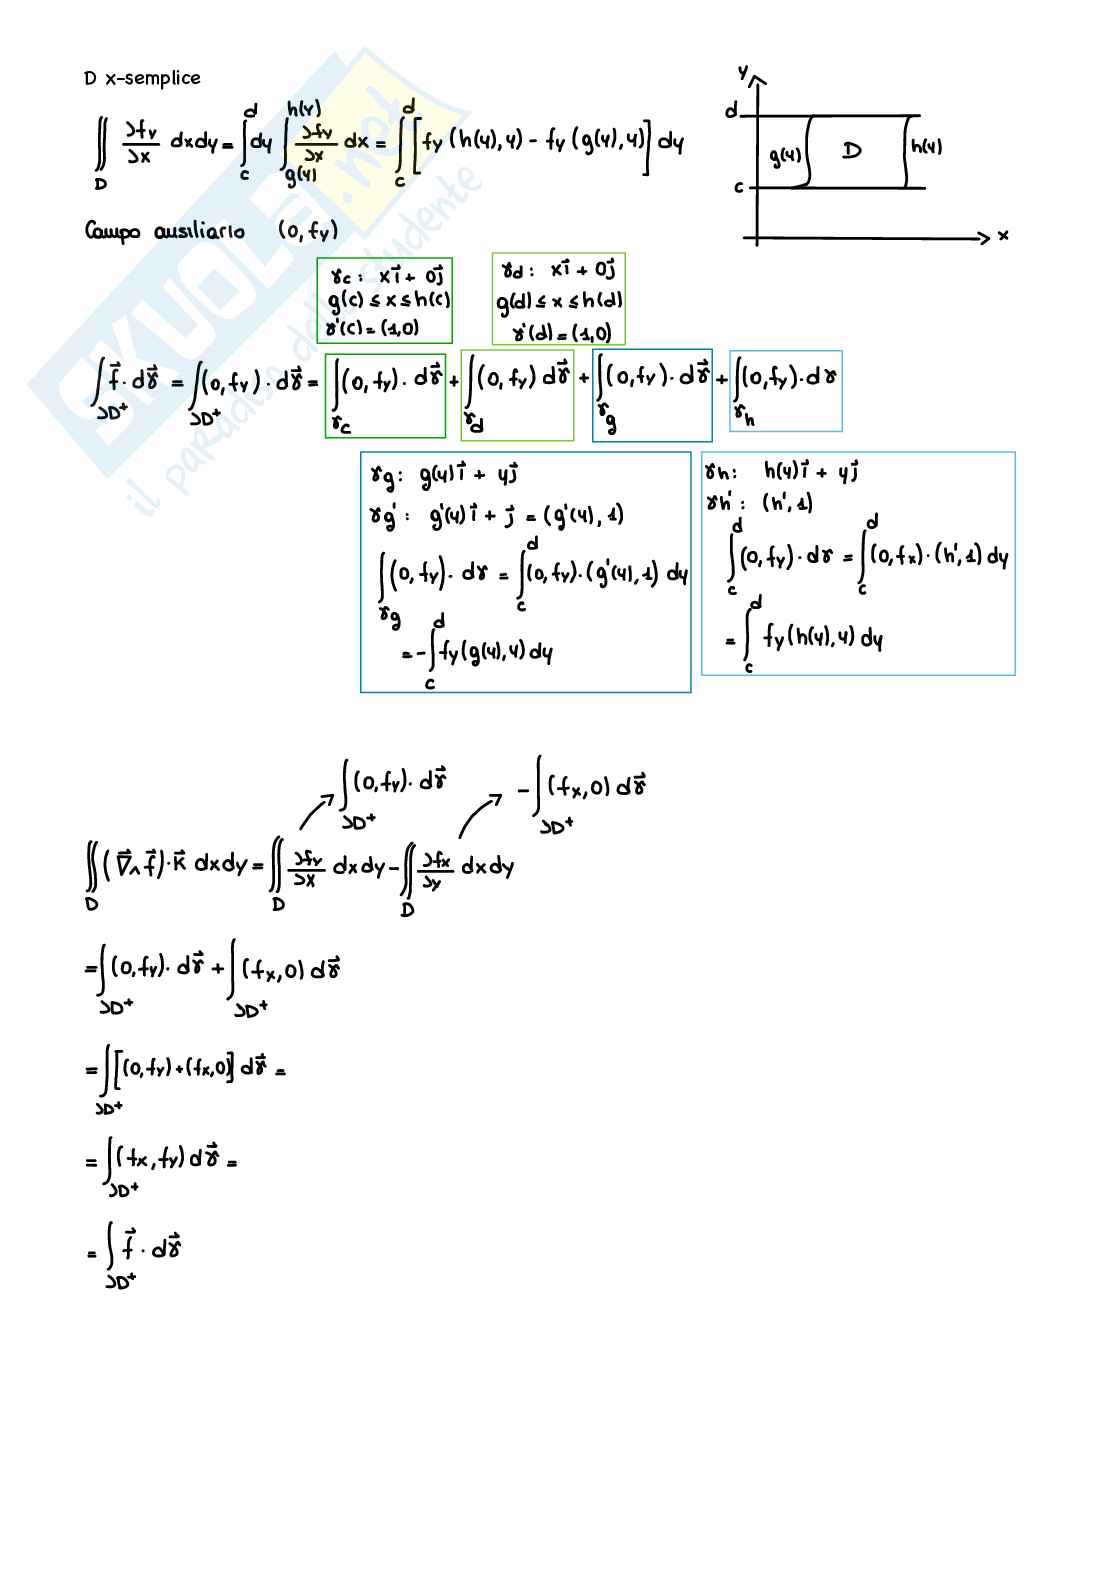 D x-semplice
∬_D ∂fy/∂x dxdy = ∫_c^d dy ∫_{g(y)}^{h(y)} ∂fy/∂x dx = ∫_c^d [fy(h(y),y) - fy(g(y),y)] dy
y
d
g(y) D h(y)
c
x
Campo ausiliario (0,fy)
γc: xi⃗ + 0j⃗
g(c) ≤ x ≤ h(c)
γ'(c) = (1,0)
γd: xi⃗ + 0j⃗
g(d) ≤ x ≤ h(d)
γ'(d) = (1,0)
∫_{∂D⁺} f⃗ · dγ⃗ = ∫_{∂D⁺} (0,fy) · dγ⃗ = ∫_{γc} (0,fy) · dγ⃗ + ∫_{γd} (0,fy) dγ⃗ + ∫_{γg} (0,fy) · dγ⃗ + ∫_{γh} (0,fy) · dγ
γg: g(y)i⃗ + yj⃗
γg': g'(y)i⃗ + j⃗ = (g'(y),1)
∫_{γg} (0,fy) · dγ = ∫_c^d (0,fy) · (g'(y),1) dy
= - ∫_c^d fy(g(y),y) dy
γh: h(y)i⃗ + yj⃗
γh': (h',1)
∫_c^d (0,fy) · dγ = ∫_c^d (0,fx) · (h',1) dy
= ∫_c^d fy(h(y),y) dy
∫_{∂D⁺} (0,fy) · dγ⃗ - ∫_{∂D⁺} (fx,0) dγ⃗
∬_D (∇⃗ ∧ f⃗) · K⃗ dxdy = ∬_D ∂fy/∂x dxdy - ∬_D ∂fx/∂y dxdy
= ∫_{∂D⁺} (0,fy) · dγ⃗ + ∫_{∂D⁺} (fx,0) dγ⃗
= ∫_{∂D⁺} [(0,fy) + (fx,0)] dγ⃗ =
= ∫_{∂D⁺} (fx,fy) dγ⃗ =
= ∫_{∂D⁺} f⃗ · dγ⃗
SKUOLA.net
il paradiso dello studente